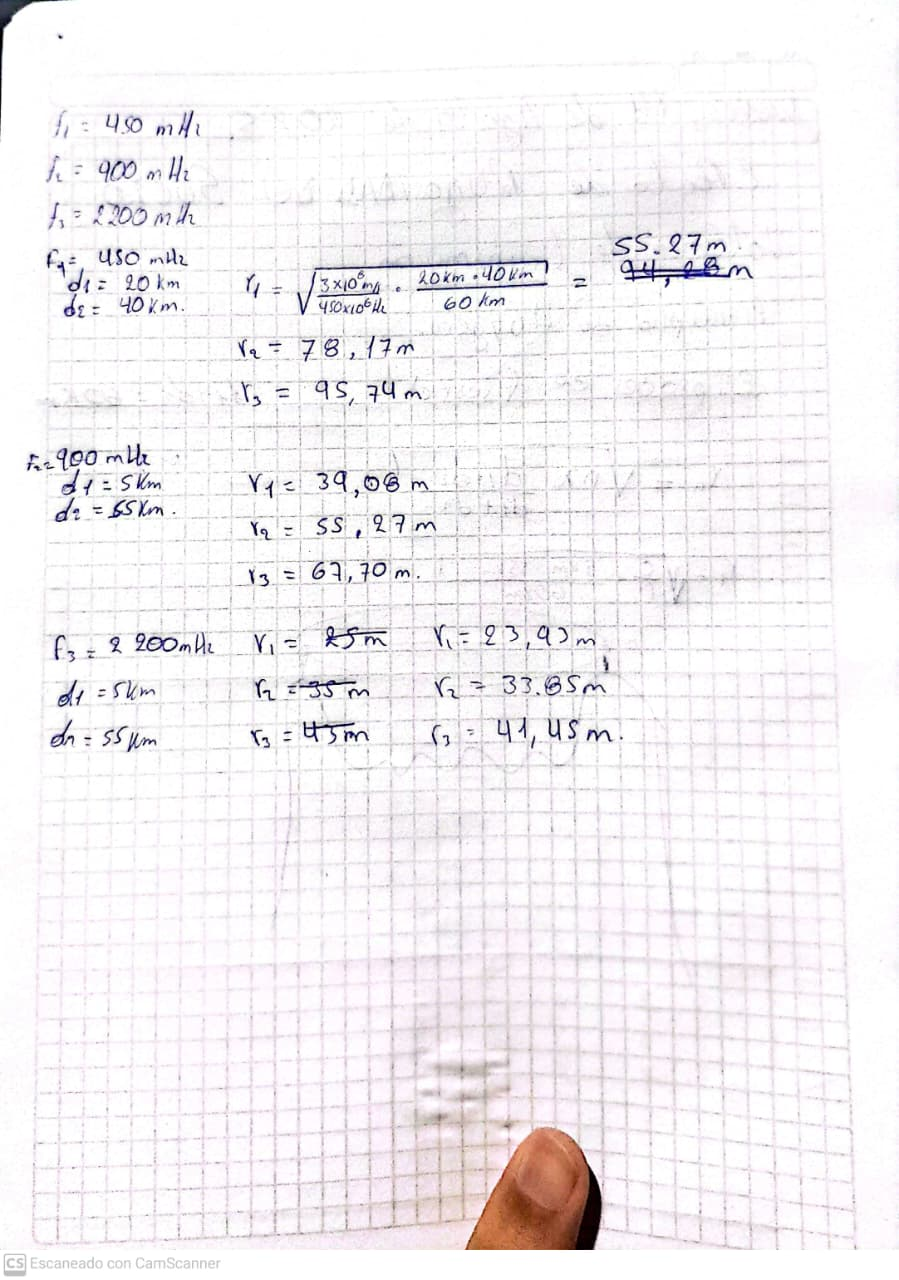 f1 = 450 mHz
f2 = 900 mHz
f3 = 2200 mHz
f1 = 450 mHz
d1 = 20 km
d2 = 40 km.
r1 = √ 3x10⁸ m/s / 450x10⁶ Hz . 20 km . 40 km / 60 km = 55.27 m
94,28 m
r2 = 78,17 m
r3 = 95,74 m
F2 = 900 mHz
d1 = 5 km
d2 = 55 km.
r1 = 39,08 m
r2 = 55,27 m
r3 = 67,70 m.
f3 = 2 200 mHz r1 = 25 m r1 = 23,93 m
d1 = 5 km r2 = 35 m r2 = 33.85 m
d2 = 55 km r3 = 45 m r3 = 41,45 m.
CS Escaneado con CamScanner